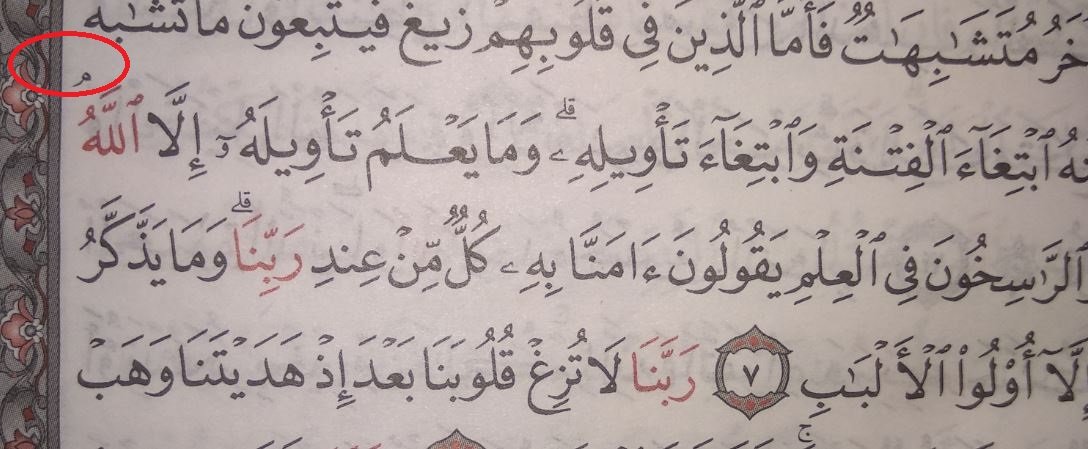 خَرُ مُتَشَـٰبِهَـٰتٌ فَأَمَّا ٱلَّذِينَ فِى قُلُوبِهِمْ زَيْغٌ فَيَتَّبِعُونَ مَا تَشَـٰبَهَ
ـنْهُ ٱبْتِغَآءَ ٱلْفِتْنَةِ وَٱبْتِغَآءَ تَأْوِيلِهِۦ ۗ وَمَا يَعْلَمُ تَأْوِيلَهُۥٓ إِلَّا ٱللَّهُ ۘ
ٱلرَّٰسِخُونَ فِى ٱلْعِلْمِ يَقُولُونَ ءَامَنَّا بِهِۦ كُلٌّ مِّنْ عِندِ رَبِّنَا ۗ وَمَا يَذَّكَّرُ
إِلَّآ أُو۟لُوا۟ ٱلْأَلْبَـٰبِ ٧ رَبَّنَا لَا تُزِغْ قُلُوبَنَا بَعْدَ إِذْ هَدَيْتَنَا وَهَبْ